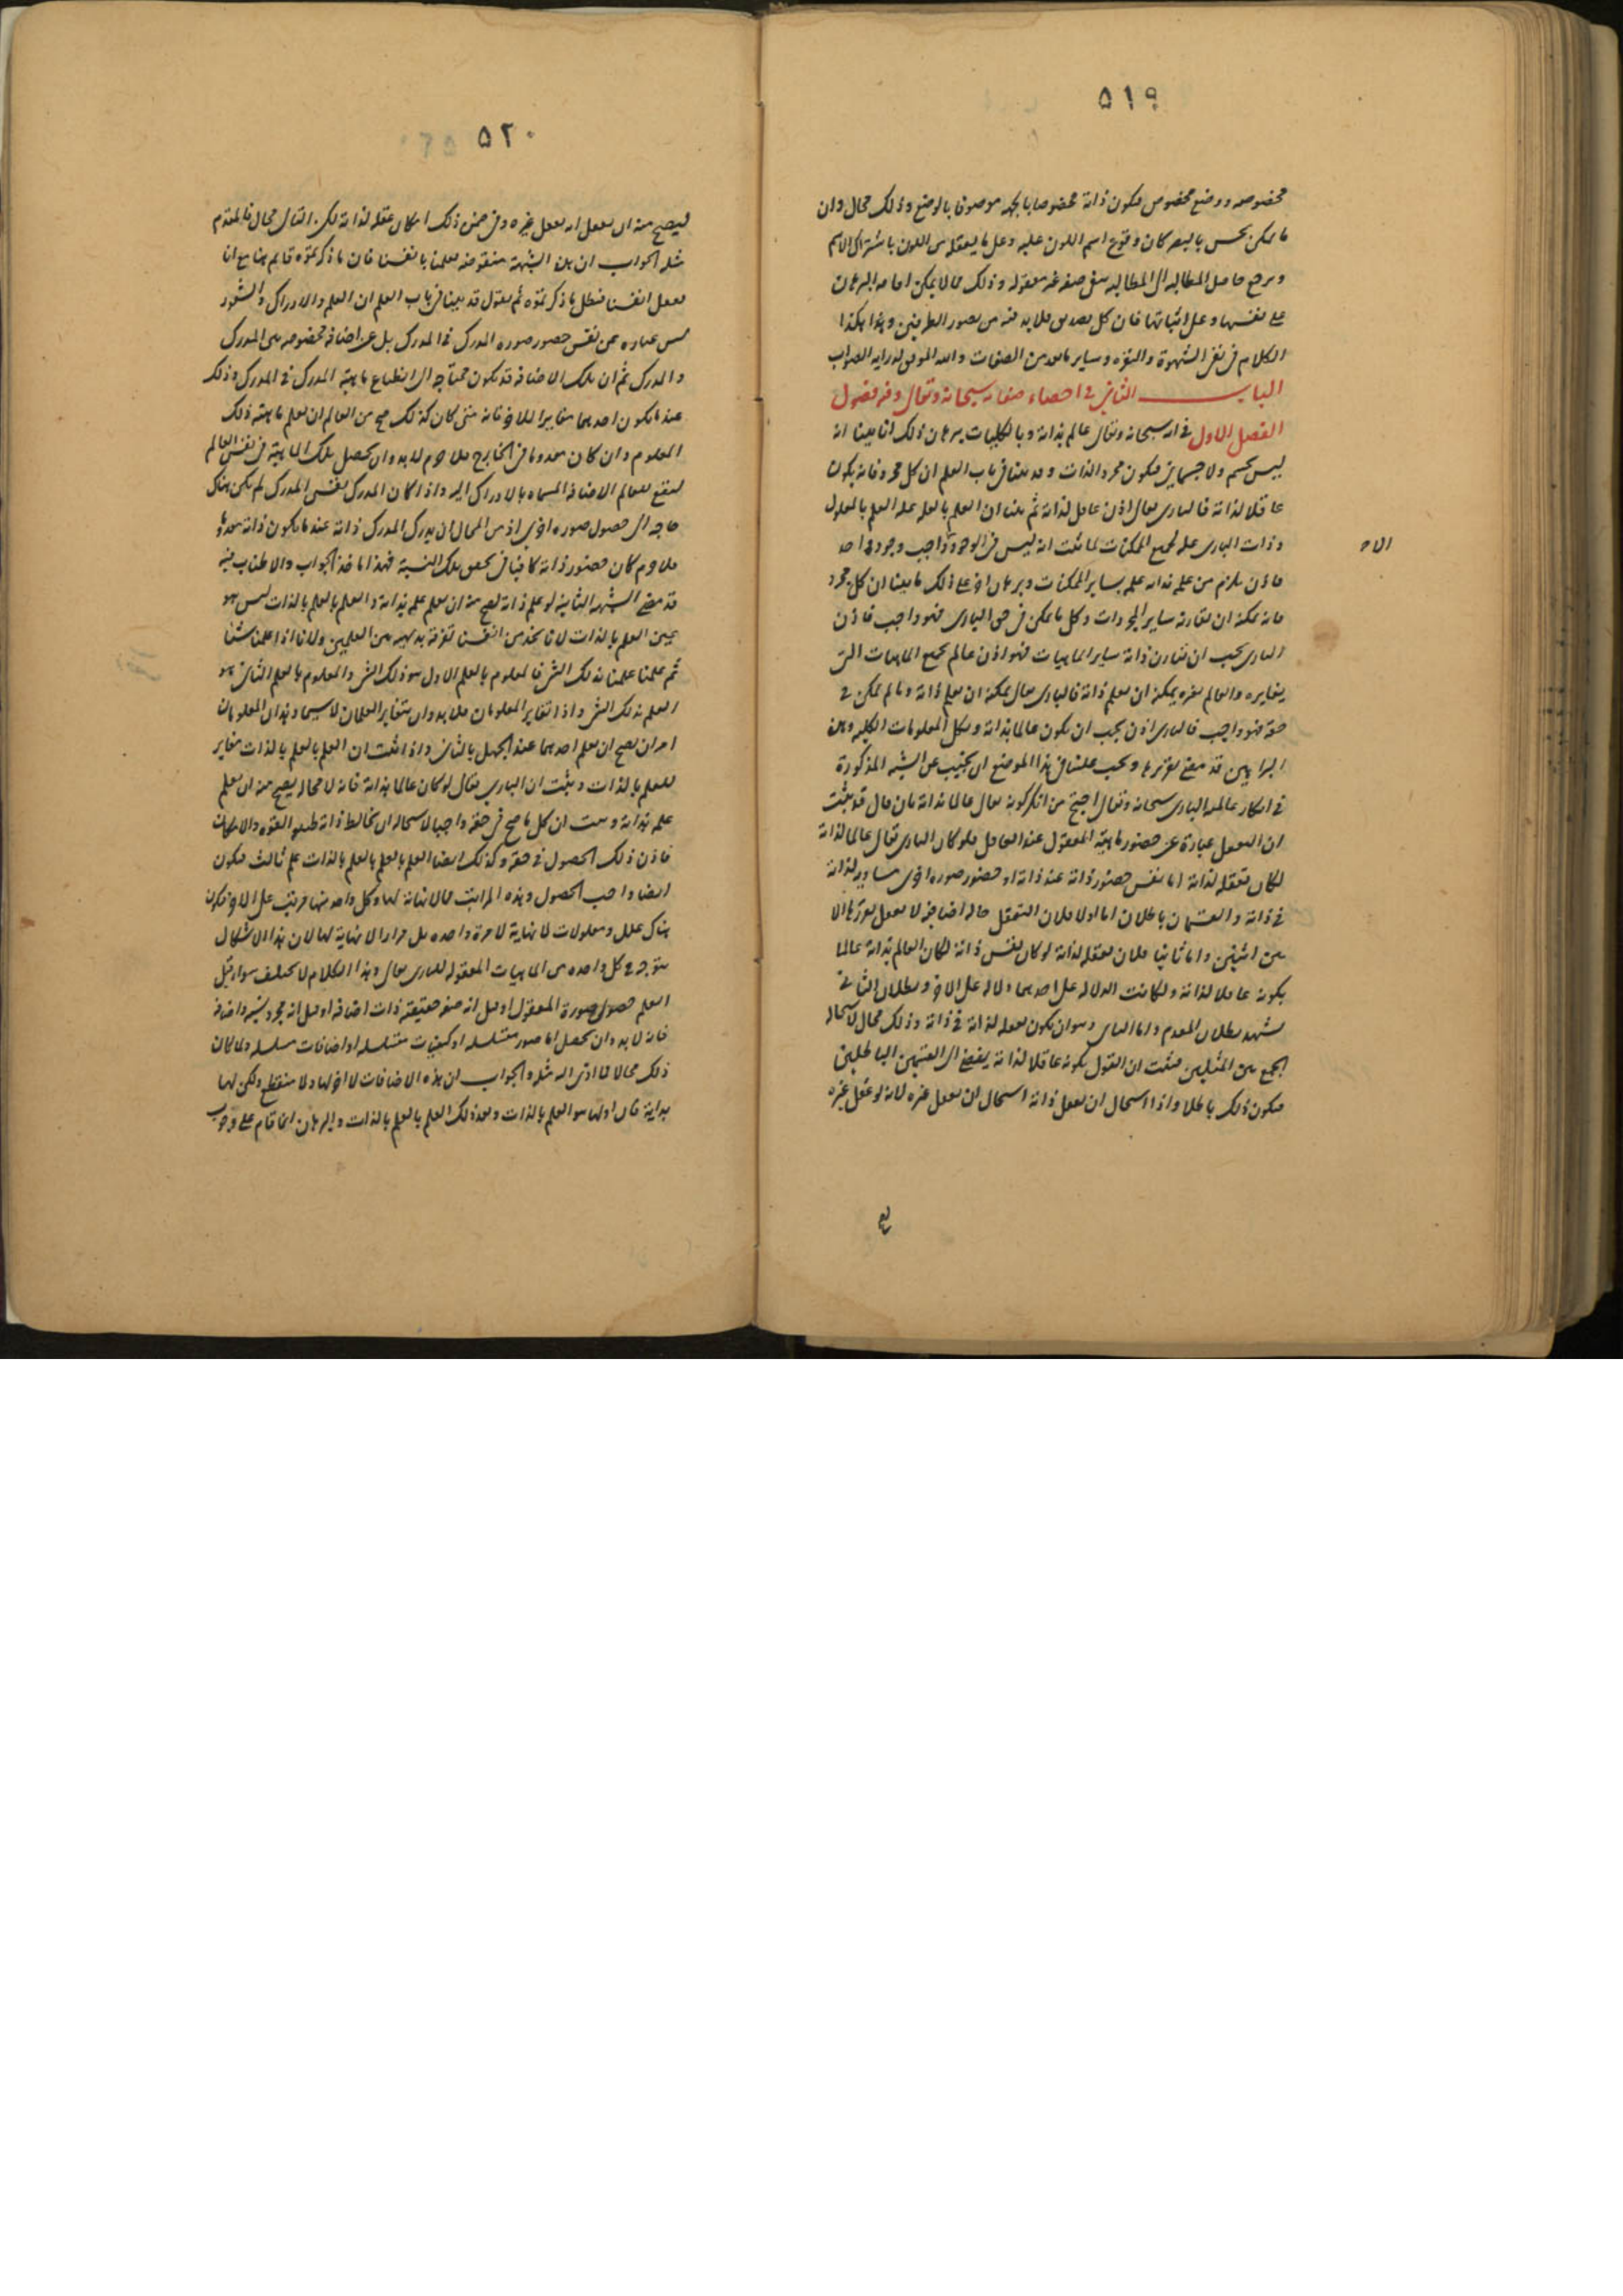 ٥١٩
مخصوصه ووضع مخصوص فيكون ذاته مخصوصا بالجهه موصوفا بالوضع وذلك محال وان
ما يمكن يحس بالبصر كان وقوع اسم اللون عليه وعلى ما يعقله من اللون باشتراك الاسم
ويرجع حاصل المطالبه الى المطالبه بنفى صفه غير معقوله وذلك مما لا يمكن اقامه البرهان
على نفيها وعلى اثباتها فان كل تصديق فلا بد فيه من تصور الطرفين وهذا هكذا
الكلام فى نفى الشهوة والنفره وساير ما يعد من الصفات والله الموفق لدرايه الصواب
الباب الثانى فى احصاء صفاته سبحانه وتعالى وفيه فصول
الفصل الاول فى انه سبحانه وتعالى عالم بذاته وبالكليات برهان ذلك انا بينا انه
ليس بجسم ولا جسمانى فيكون مجرد الذات وقد بينا فى باب العلم ان كل مجرد فانه يكون
عاقلا لذاته فالبارى تعالى اذن عاقل لذاته ثم بينا ان العلم بالعله عله العلم بالمعلول
وذات البارى عله لجميع الممكنات لما ثبت انه ليس فى الوجود واجب وجود واحد
الا
فاذن يلزم من علمه بذاته علمه بساير الممكنات وبرهان اخر على ذلك ما بينا ان كل مجرد
فانه يمكنه ان يقارنه ساير المجردات وكل ما يمكن فى حق البارى فهو واجب فاذن
البارى يجب ان يقارن ذاته ساير الماهيات فهو اذن عالم بجميع الماهيات التى
يغايره والعالم بغيره يمكنه ان يعلم ذاته فالبارى تعالى يمكنه ان يعلم ذاته وما لم يمكن فى
حقه فهو واجب فالبارى اذن يجب ان يكون عالما بذاته وبكل المعلومات الكليه وهذه
البراهين قد مضى تقريرها ويجب علينا فى هذا الموضع ان نجيب عن الشبه المذكورة
فى انكار عالميه البارى سبحانه وتعالى احتج من انكر كونه تعالى عالما بذاته بان قال قد ثبت
ان التعقل عبارة عن حضور ماهية المعقول عند العاقل فلو كان البارى تعالى عالما لذاته
لكان تعقله لذاته اما نفس حضور ذاته عند ذاته او حضور صوره اخرى مساويه لذاته
فى ذاته والقسمان باطلان اما اولا فلان التعقل حاله اضافيه لا يعقل تقررها الا
بين اثنين واما ثانيا فلان تعقله لذاته لو كان نفس ذاته لكان العالم بذاته عالما
بكونه عاقلا لذاته ولكانت الدلاله على احدهما دلاله على الاخر وبطلان الثانى
يشهد ببطلان المقدم واما الثانى وهو ان يكون تعقله لذاته فى ذاته وذلك محال لاستحاله
الجمع بين المثلين فثبت ان القول بكونه عاقلا لذاته يفضى الى القسمين الباطلين
فيكون ذلك باطلا واذا استحال ان يعقل ذاته استحال ان يعقل غيره لانه لو عقل غيره
٥٢٠
ليصح منه ان يعقل انه يعقل غيره وفى ضمن ذلك امكان عقله لذاته لكن التالى محال فالمقدم
مثله الجواب ان هذه الشبهة منقوضه بعلمنا بانفسنا فان ما ذكرتموه قايم هنا مع انا
نعقل انفسنا فبطل ما ذكرتموه ثم نقول قد بينا فى باب العلم ان العلم والادراك والشعور
ليس عباره عن نفس حضور صوره المدرك فى المدرك بل عن اضافه مخصوصه بين المدرك
والمدرك ثم ان تلك الاضافه قد تكون محتاجه الى انطباع ماهية المدرك فى المدرك وذلك
عند ما يكون احدهما مغايرا للاخر فانه متى كان كذلك صح من العالم ان يعلم ماهيته ذلك
المعلوم وان كان معدوما فى الخارج فلا جرم لا بد وان يحصل تلك الماهية فى نفس العالم
ليقع للعالم الاضافه المسماه بالادراك اليه واذا كان المدرك نفس المدرك لم يكن هناك
حاجه الى حصول صوره اخرى اذ من المحال ان يدرك المدرك ذاته عند ما يكون ذاته معدوما
فلا جرم كان حضور ذاته كافيا فى تحقق تلك النسبة فهذا ماخذ الجواب والاطناب فيه
قد مضى الشبهه الثانيه لو علم ذاته لصح منه ان يعلم علمه بذاته والعلم بالعلم بالذات ليس هو
عين العلم بالذات لانا نجد من انفسنا تفرقة بديهيه بين العلمين ولانا اذا علمنا شيئا
ثم علمنا علمنا بذلك الشى فالمعلوم بالعلم الاول هو ذلك الشى والمعلوم بالعلم الثانى هو
العلم بذلك الشى واذا تغاير المعلومان فلا بد وان يتغاير العلمان لا سيما وهذان المعلومان
امران يصح ان يعلم احدهما عند الجهل بالثانى واذا ثبت ان العلم بالعلم بالذات مغاير
للعلم بالذات وثبت ان البارى تعالى لو كان عالما بذاته فانه لا محاله يصح منه ان يعلم
علمه بذاته وثبت ان كل ما صح فى حقه واجبا لاستحاله ان يخالط ذاته طبيعه القوه والامكان
فاذن ذلك الحصول فى حقه وكذلك ايضا العلم بالعلم بالعلم بالذات علم ثالث فيكون
ايضا واجب الحصول وهذه المراتب مما لا نهايه لها وكل واحد منها مرتب على الاخر فيكون
هناك علل ومعلولات لا نهاية لا مرة واحده بل مرارا لا نهاية لها لان هذا الاشكال
يتوجه فى كل واحده من الماهيات المعقوله للبارى تعالى وهذا الكلام لا يختلف سواء قيل
العلم حصول صورة المعقول او قيل انه صفه حقيقيه ذات اضافه او قيل انه مجرد نسبه واضافه
فانه لا بد وان يحصل اما صور متسلسله او كيفيات متسلسله او اضافات متسلسله ولما كان
ذلك محالا فما ادى اليه مثله والجواب ان هذه الاضافات لا اخر لها ولا منقطع ولكن لها
بداية فان اولها هو العلم بالذات وبعد ذلك العلم بالعلم بالذات والبرهان انما قام على وجوب